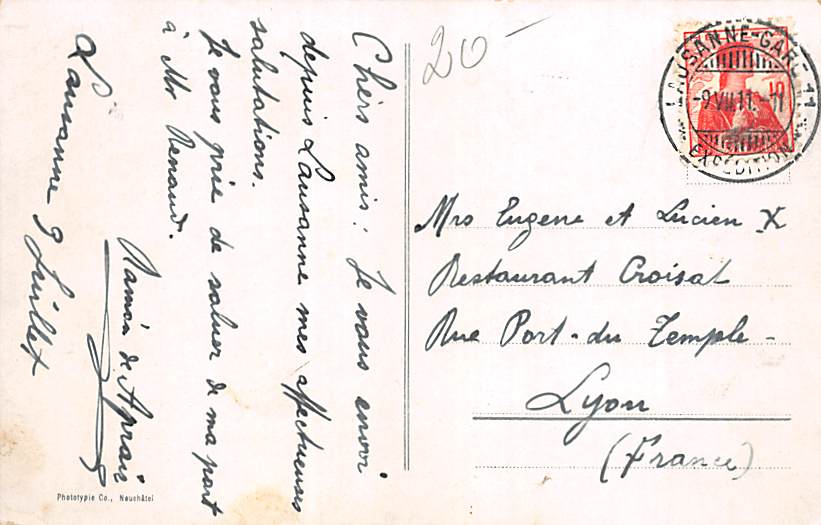 Chers amis: Je vous envoi
depuis Lausanne mes affectueuses
salutations.
Je vous prie de saluer de ma part
à Mr Renaud.
Ramón de
Lausanne 9 Juillet
Phototypie Co., Neuchâtel
20-
LAUSANNE-GARE
-9.VII.11.-11
EXPÉDITION
10
Mrs Eugene et Lucien X
Restaurant Croisat
Rue Port-du Temple-
Lyon
(France)